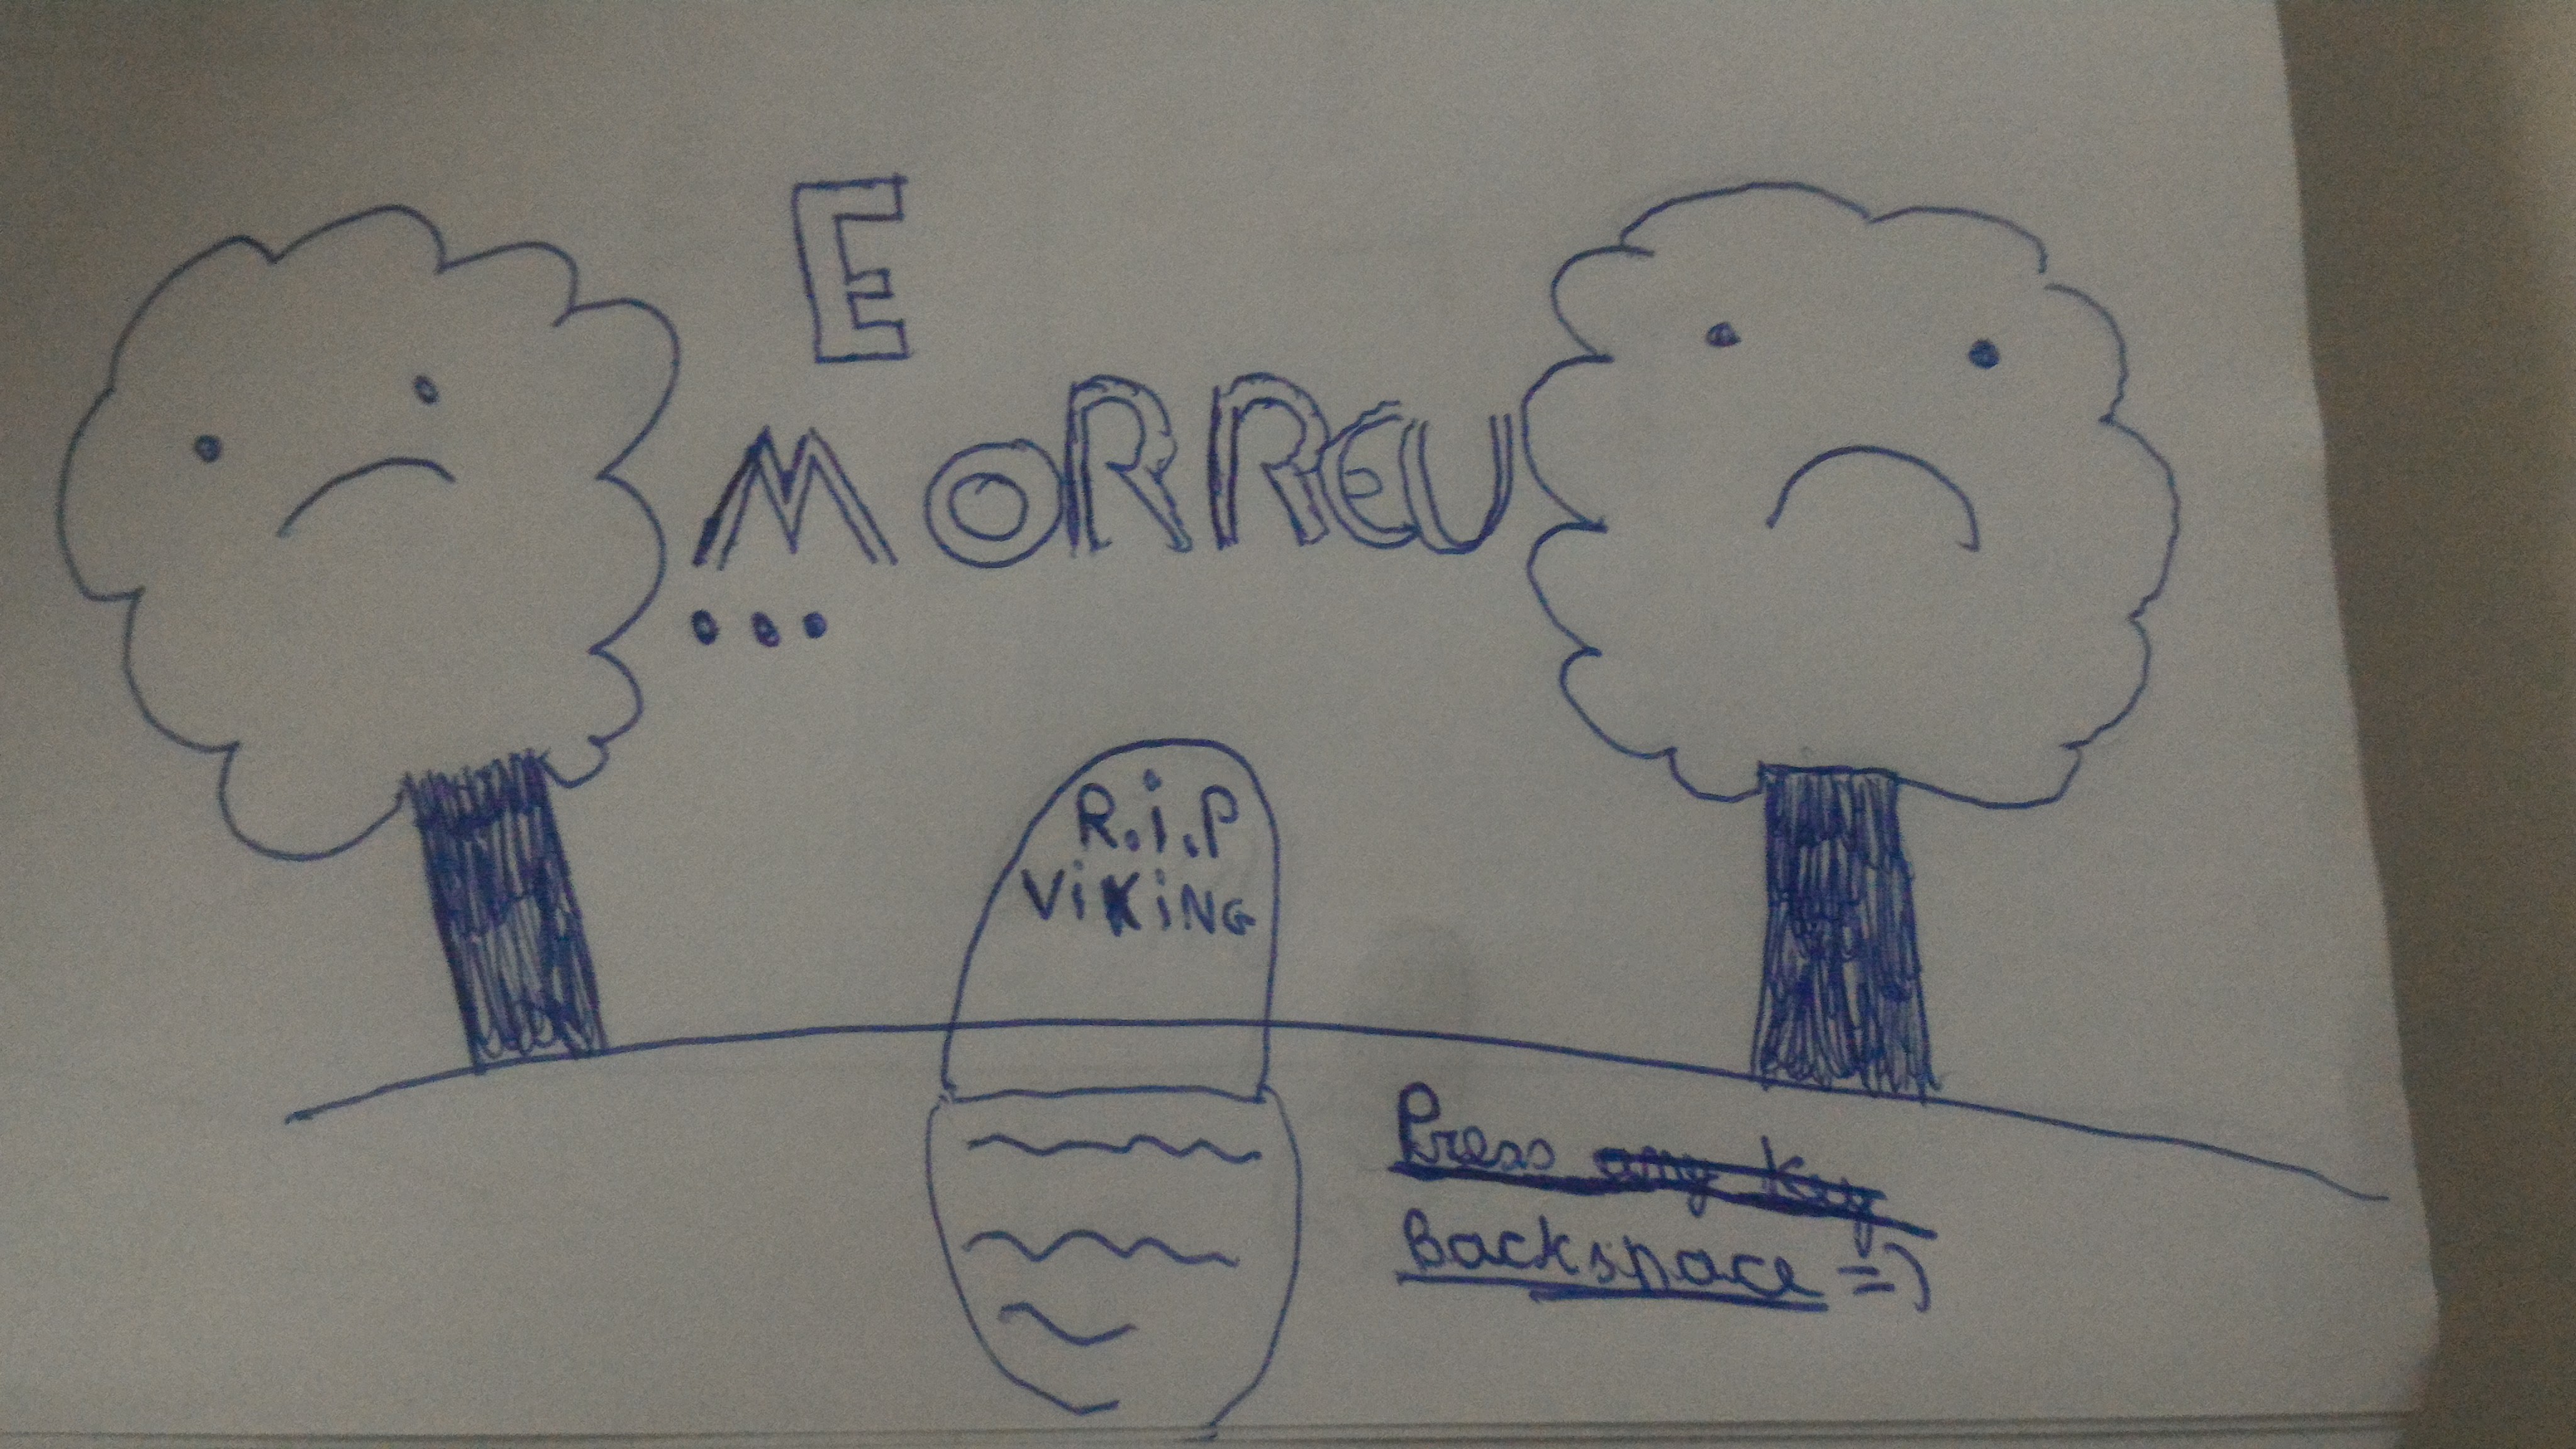 E
MORREU
...
R.i.P
ViKiNG
Press any key
Backspace =)